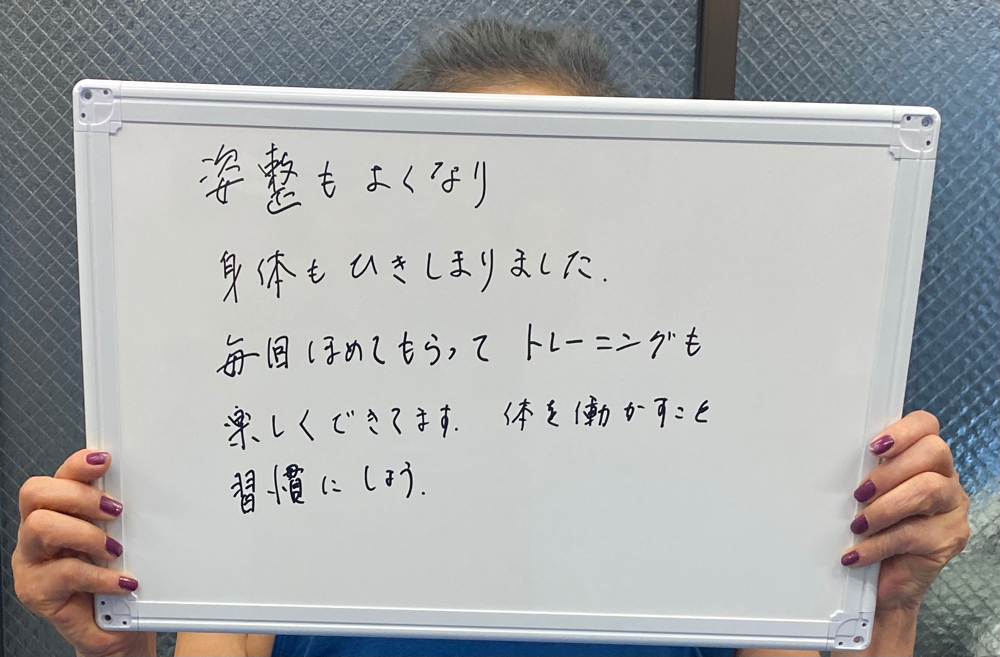 姿整もよくなり
身体もひきしまりました.
毎回ほめてもらって トレーニングも
楽しくできてます. 体を働かすこと
習慣にしよう.